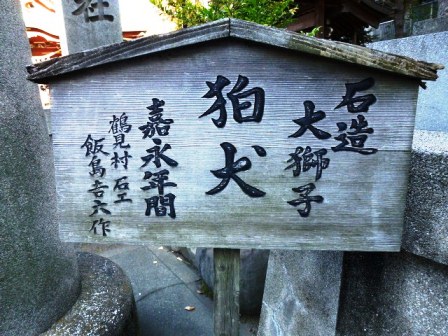 石造
大獅子
狛犬
嘉永年間
鶴見村 石工
飯島吉六作
社